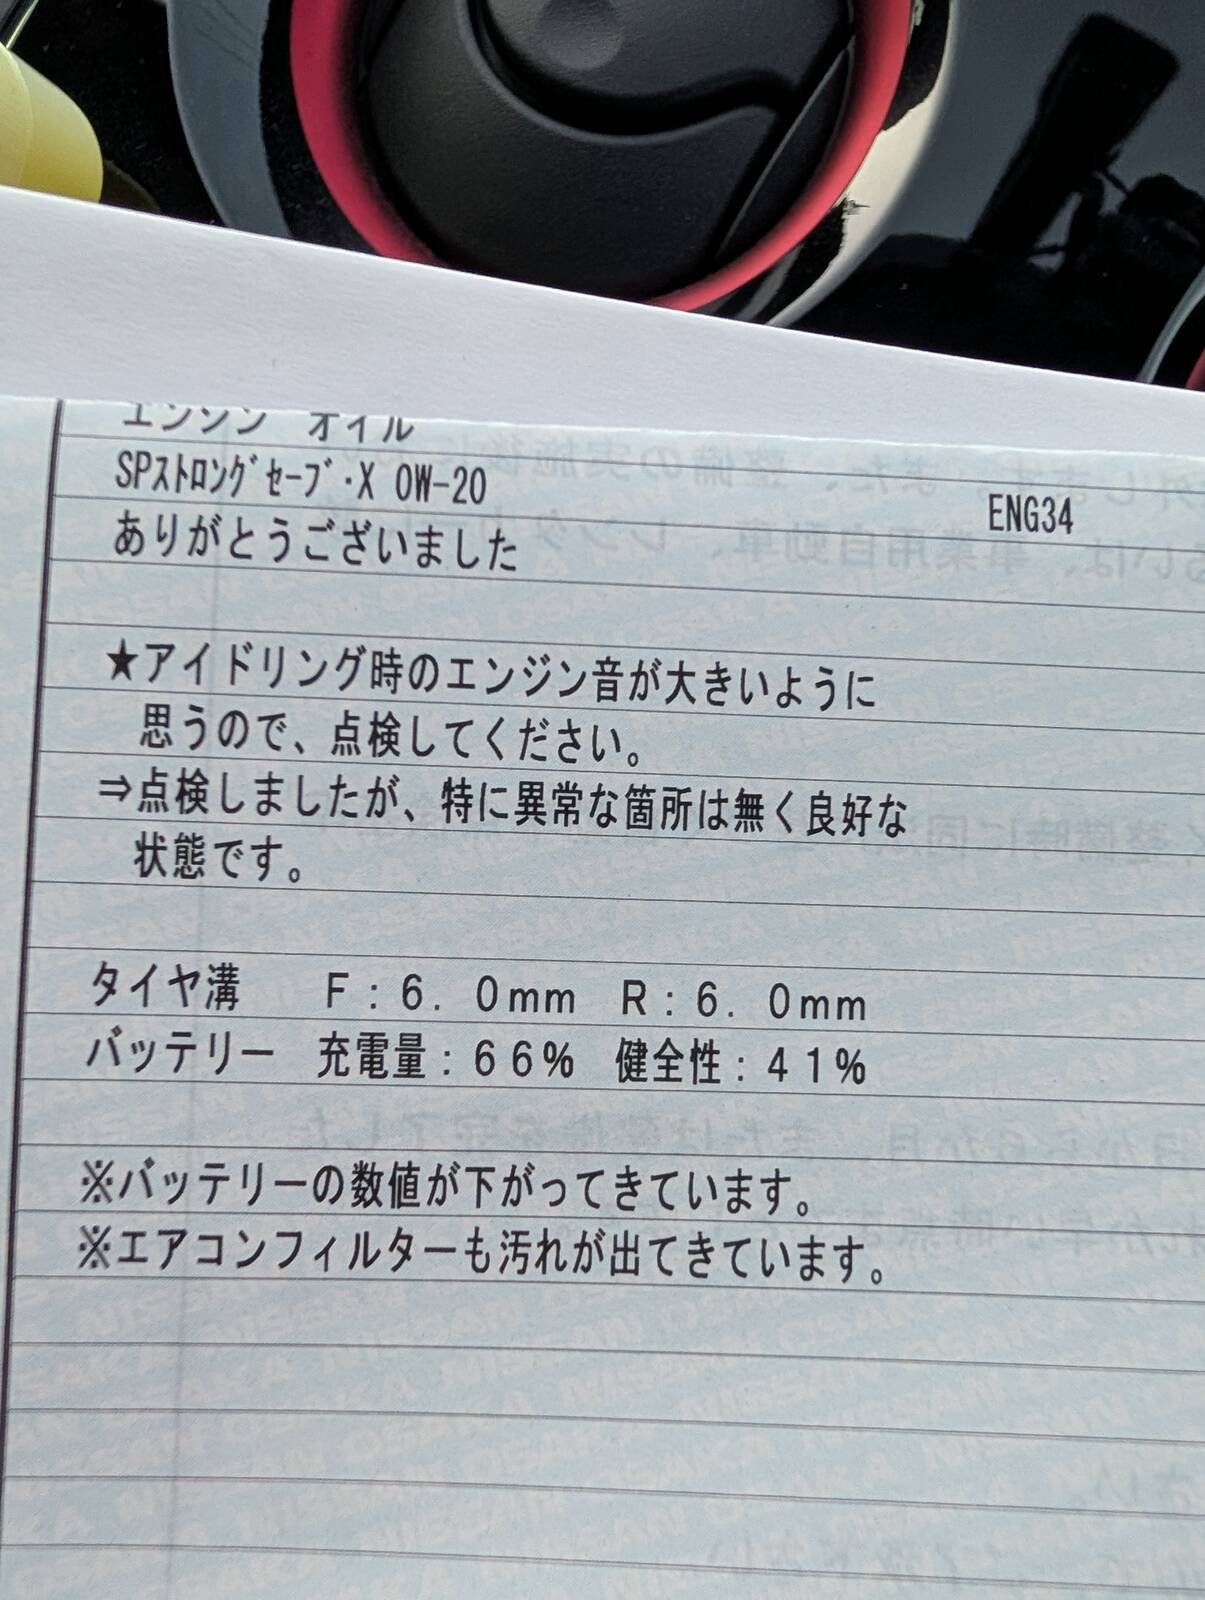 エンジン オイル
SPｽﾄﾛﾝｸﾞｾｰﾌﾞ･X 0W-20
ENG34
ありがとうございました
★アイドリング時のエンジン音が大きいように
思うので、点検してください。
⇒点検しましたが、特に異常な箇所は無く良好な
状態です。
タイヤ溝 F：6．0mm R：6．0mm
バッテリー 充電量：66% 健全性：41%
※バッテリーの数値が下がってきています。
※エアコンフィルターも汚れが出てきています。